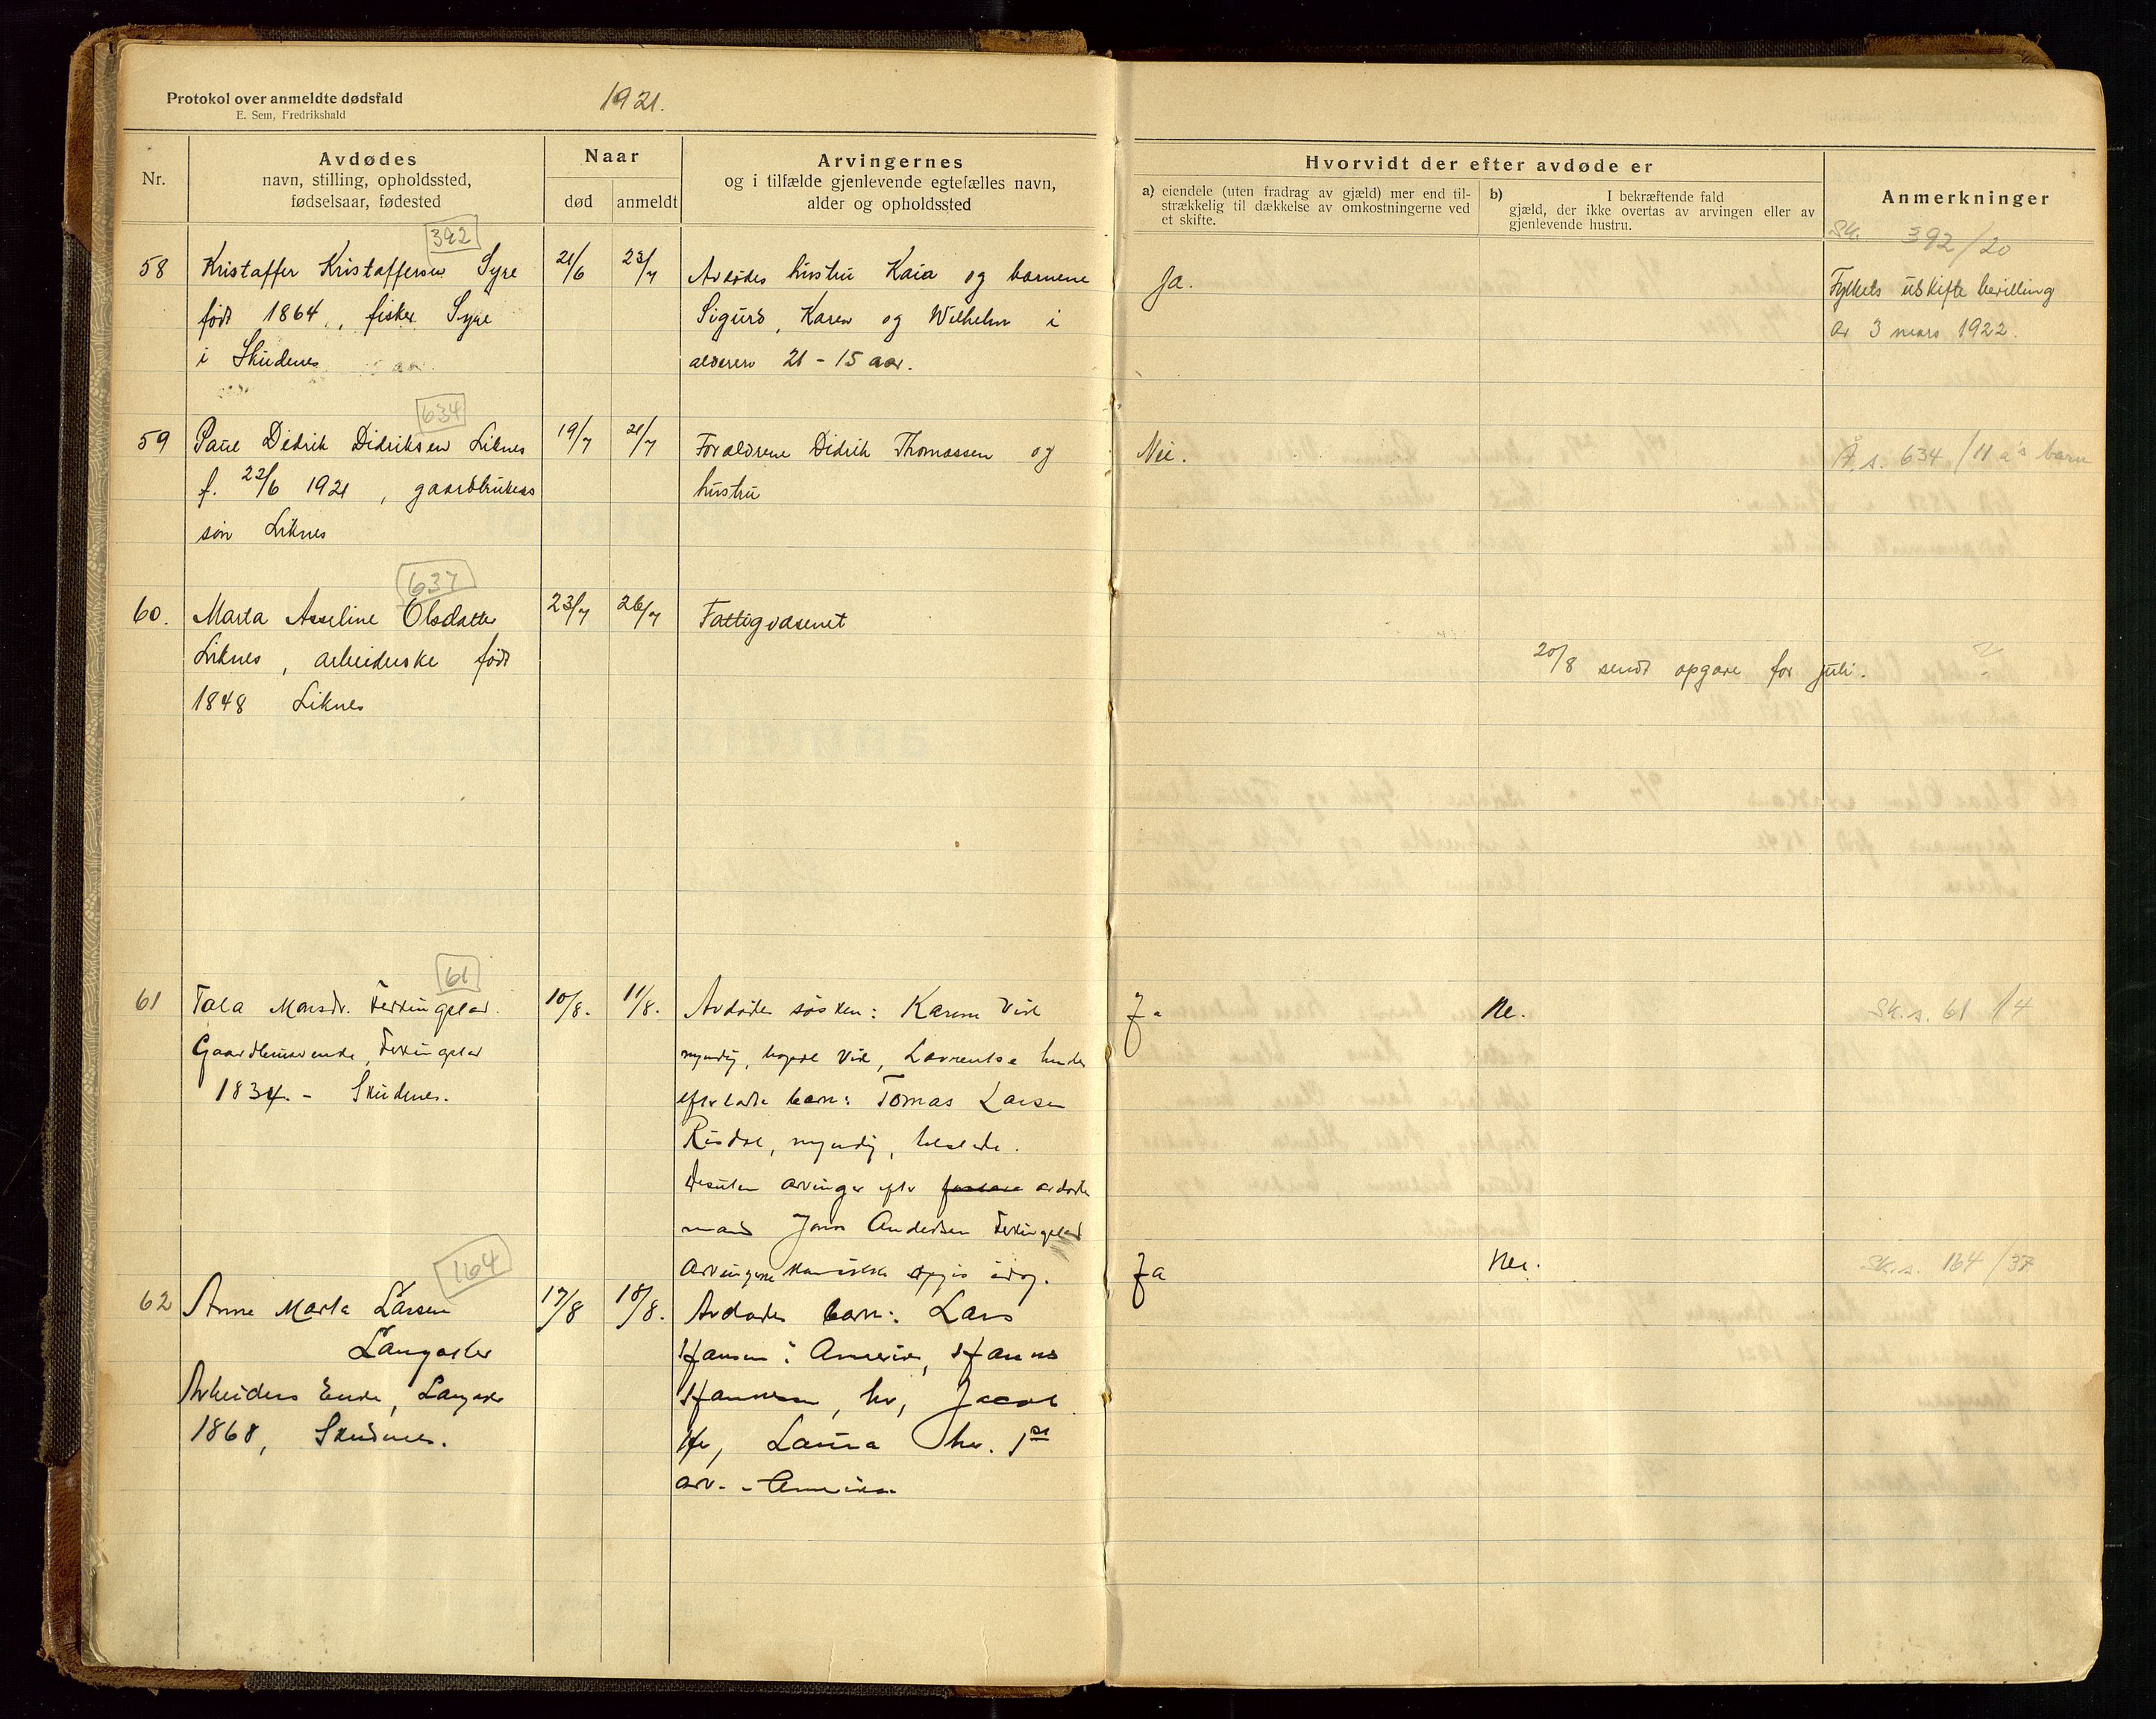 Protokol over anmeldte dødsfald
E. Sem, Fredrikshald
1921.
Nr.
Avdødes
navn, stilling, opholdssted,
fødselsaar, fødested
Naar
død
anmeldt
Arvingernes
og i tilfælde gjenlevende egtefælles navn,
alder og opholdssted
Hvorvidt der efter avdøde er
a) eiendele (uten fradrag av gjæld) mer end til-
strækkelig til dækkelse av omkostningerne ved
et skifte.
b) I bekræftende fald
gjæld, der ikke overtas av arvingen eller av
gjenlevende hustru.
Anmerkninger
392
58
Kristoffer Kristoffersen Syre
født 1864, fisker Syre
i Skudenes
21/6
23/7
Avdødes hustru Kaia og barnene
Sigurd, Karen og Wilhelm i
alderen 21 - 15 aar.
Ja.
Sk. 392/20
Fylkets uskifte bevilling
av 3 mars 1922.
634
59
Paul Didrik Didriksen Liknes
f. 22/6 1921, gaardbrukers
søn Liknes
19/7
21/7
Forældrene Didrik Thomassen og
hustru
Nei.
s. 634/11 a's barn
637
60.
Marta Asseline Olsdatter
Liknes, arbeiderske født
1848 Liknes
23/7
26/7
Fattigvæsenet
20/8 sendt opgave for juli.
61
61
Tala Monsdr. Ferkingstad.
Ferkingstad
1834. - Skudenes.
10/8.
11/8.
Avdødes søsken: Karen Vik
myndig, Vik, Laurentse hendes
efterlatte barn: Tomas Larsen
Risdal, myndig,
Desuten arvinger efter avdøde
mand Jonas Andersen Ferkingstad
Arvingene kan ikke opgis idag.
Ja
Nei.
Sk. s. 61/4
164
62
Anne Marta Larsen
Langaker
Arbeiders Enke, Langaker
1868, Skudenes.
17/8
18/8.
Avdødes barn: Lars
Hansen i Amerika, Hans
Hansen, her, Jacob
her, Laura her. 1 st
arv. - Amerika
Ja
Nei.
Sk. s. 164/37